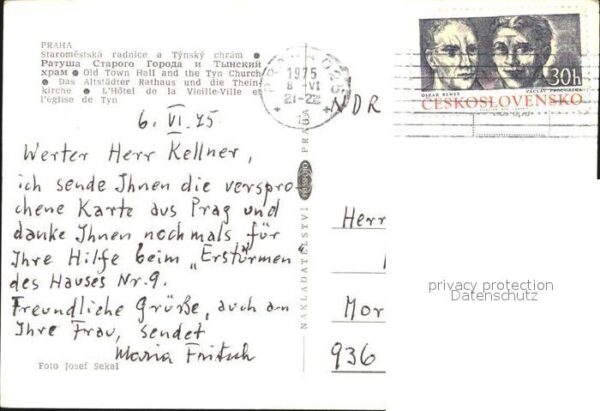 PRAHA
Staroměstská radnice a Týnský chrám ●
Ратуша Старого Города и Тынский
храм ● Old Town Hall and the Tyn Church
● Das Altstädter Rathaus und die Thein-
kirche ● L'Hôtel de la Vieille-Ville
l'église de Tyn
6. VI. 75
Werter Herr Kellner,
ich sende Ihnen die verspro
chene Karte aus Prag und
danke Ihnen nochmals für
Ihre Hilfe beim „Erstürmen"
des Hauses Nr. 9.
Freundliche Grüße, auch an
Ihre Frau, sendet
Maria Fritsch
Foto Josef Sekal
NAKLADATELSTVÍ
PRAHA
1975
8 -VI
21-22
NDR
OSKAR BENEŠ
VÁCLAV PROCHÁZKA
30h
ČESKOSLOVENSKO
Herr
Mor
936
privacy protection
Datenschutz